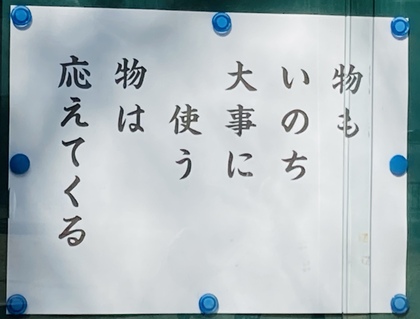 物も
いのち
大事に
使う
物は
応えてくる